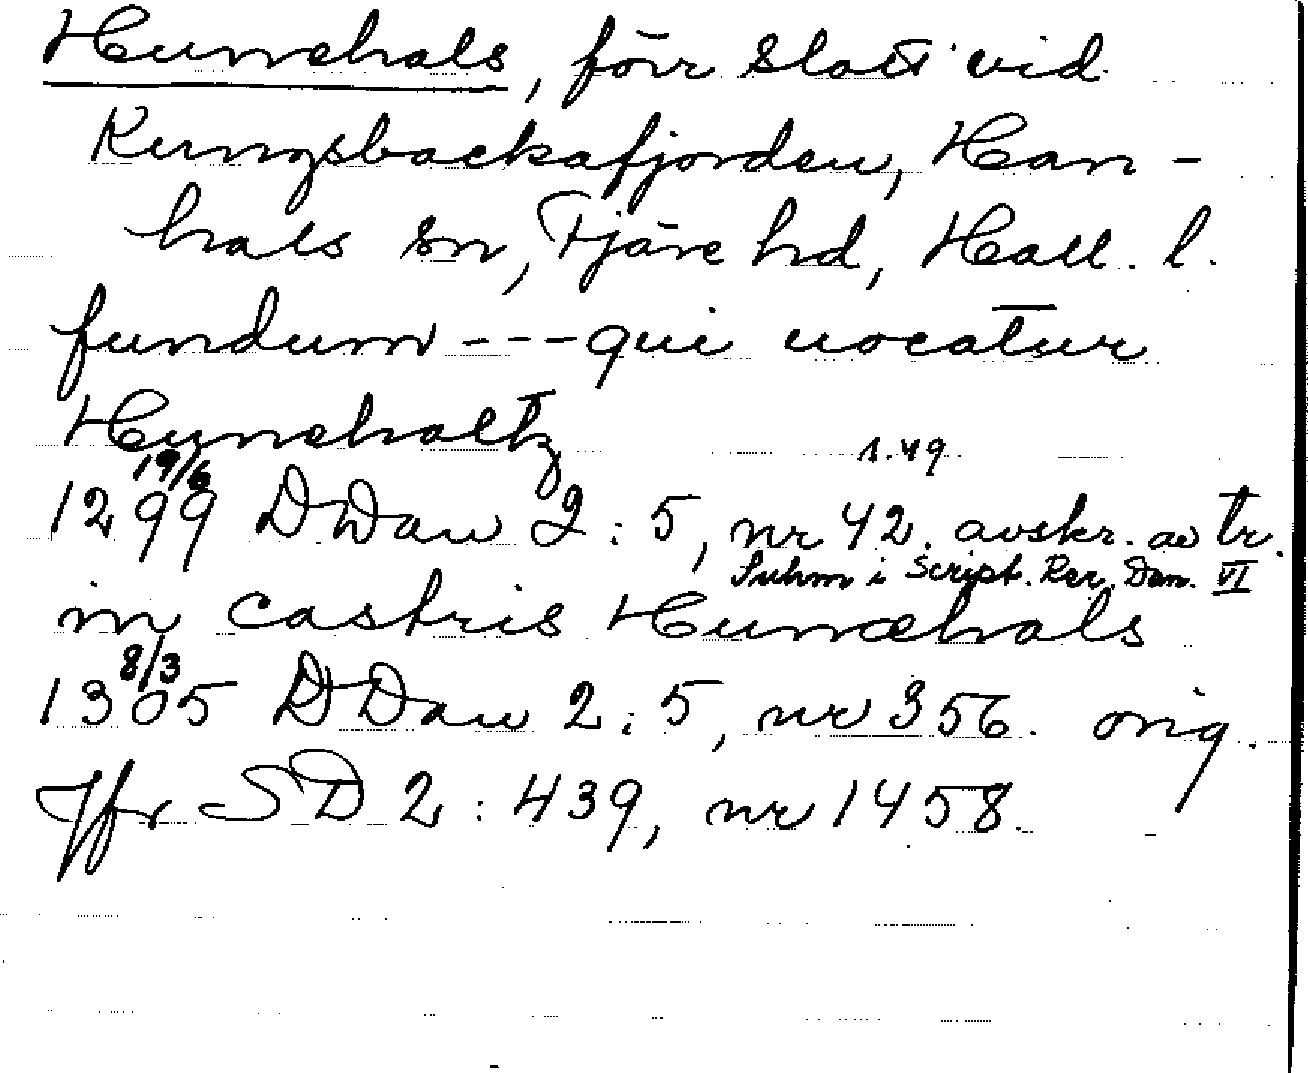 Hunehals, förr slott vid
Kungsbackafjorden, Han-
hals sn, Fjäre hd, Hall. l.
fundum --- qui uocatur
Hunehaltz
19/6 s. 49
1299 DDan 2:5, nr 42. avskr. av tr.
Suhm i Script. Rer. Dan. VI
in castris Hunæhals
8/3
1305 DDan 2:5, nr 356. orig.
Jfr SD 2:439, nr 1458.